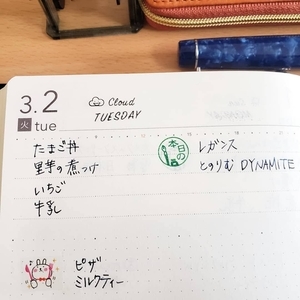 3.2
火 tue
Cloud
TUESDAY
たまご丼
里芋の煮つけ
いちご
牛乳
本日の
レガンス
とのりむ DYNAMITE
ピザ
ミルクティー